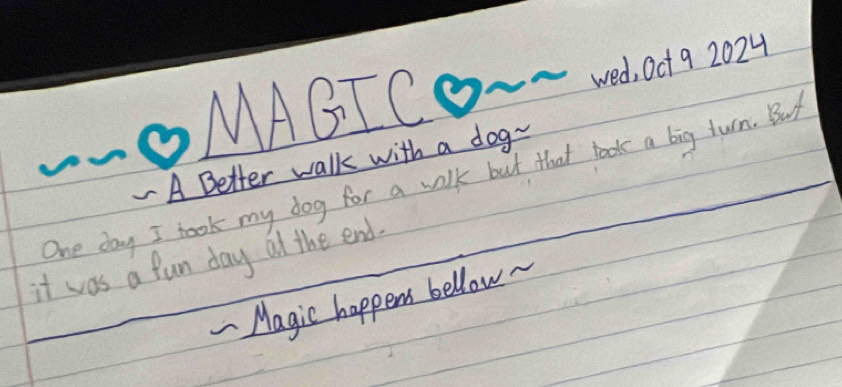 MAGIC
wed, Oct 9 2024
~ A Better walk with a dog ~
One day I took my dog for a walk but that took a big turn. But
it was a fun day at the end.
~ Magic happens bellow ~